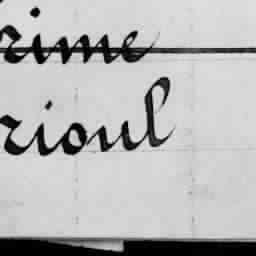 rime
rioul